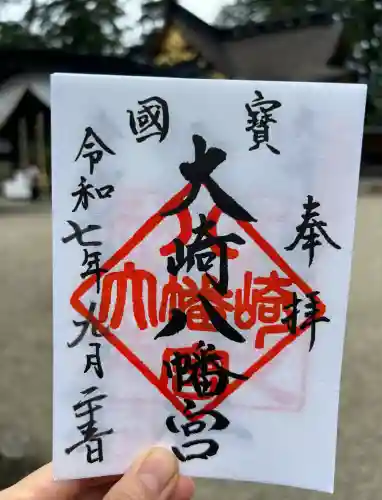 奉拝
寶
大崎八幡宮
國
令和七年九月二十春
大崎八幡宮